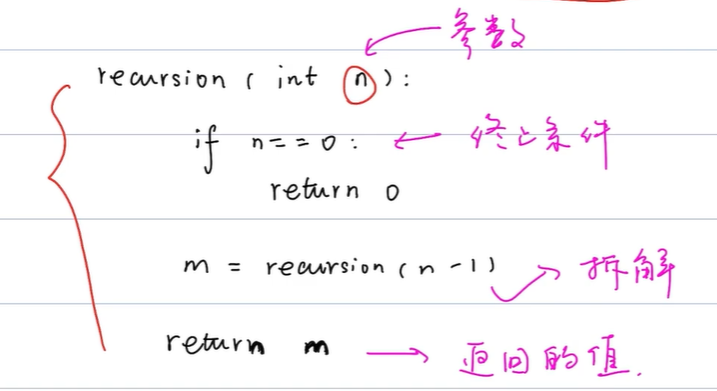 参数
recursion ( int n ) :
if n == 0 : ← 终止条件
return 0
m = recursion ( n - 1 ) → 拆解
return m → 返回的值.